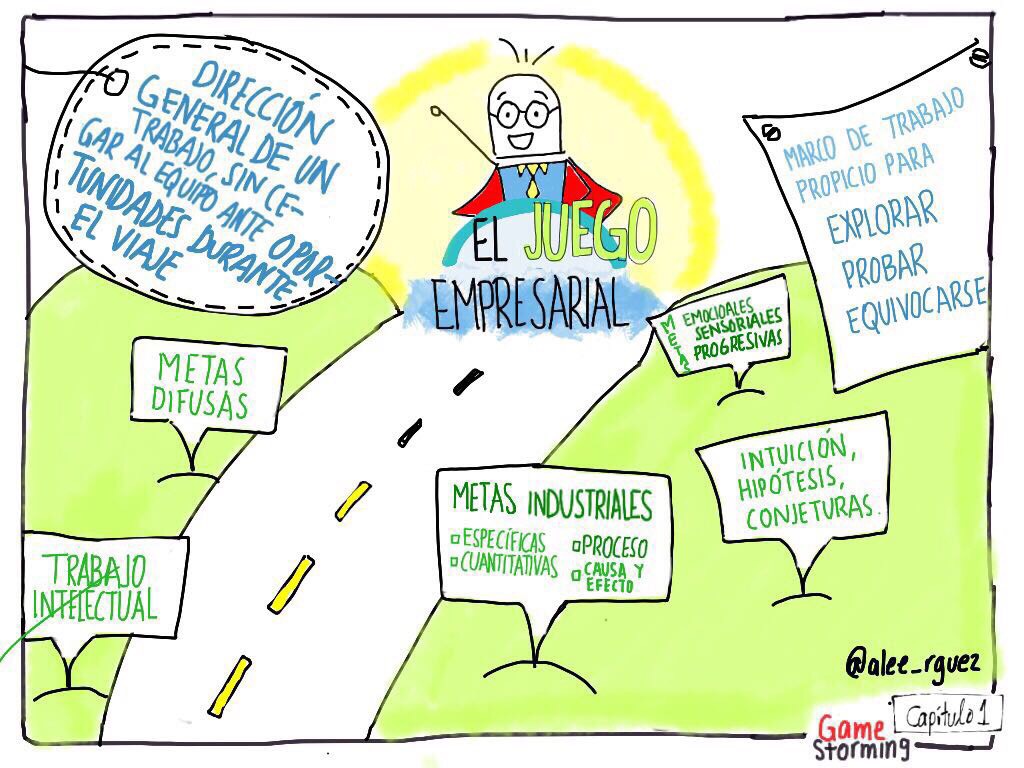 DIRECCIÓN
GENERAL DE UN
TRABAJO, SIN CE-
GAR AL EQUIPO ANTE OPOR-
TUNIDADES DURANTE
EL VIAJE
EL JUEGO
EMPRESARIAL
MARCO DE TRABAJO
PROPICIO PARA
EXPLORAR
PROBAR
EQUIVOCARSE
METAS
EMOCIOALES
SENSORIALES
PROGRESIVAS
METAS
DIFUSAS
INTUICIÓN,
HIPÓTESIS,
CONJETURAS.
METAS INDUSTRIALES
ESPECÍFICAS
CUANTITATIVAS
PROCESO
CAUSA Y
EFECTO
TRABAJO
INTELECTUAL
@alee_rguez
Game
Storming
Capítulo 1